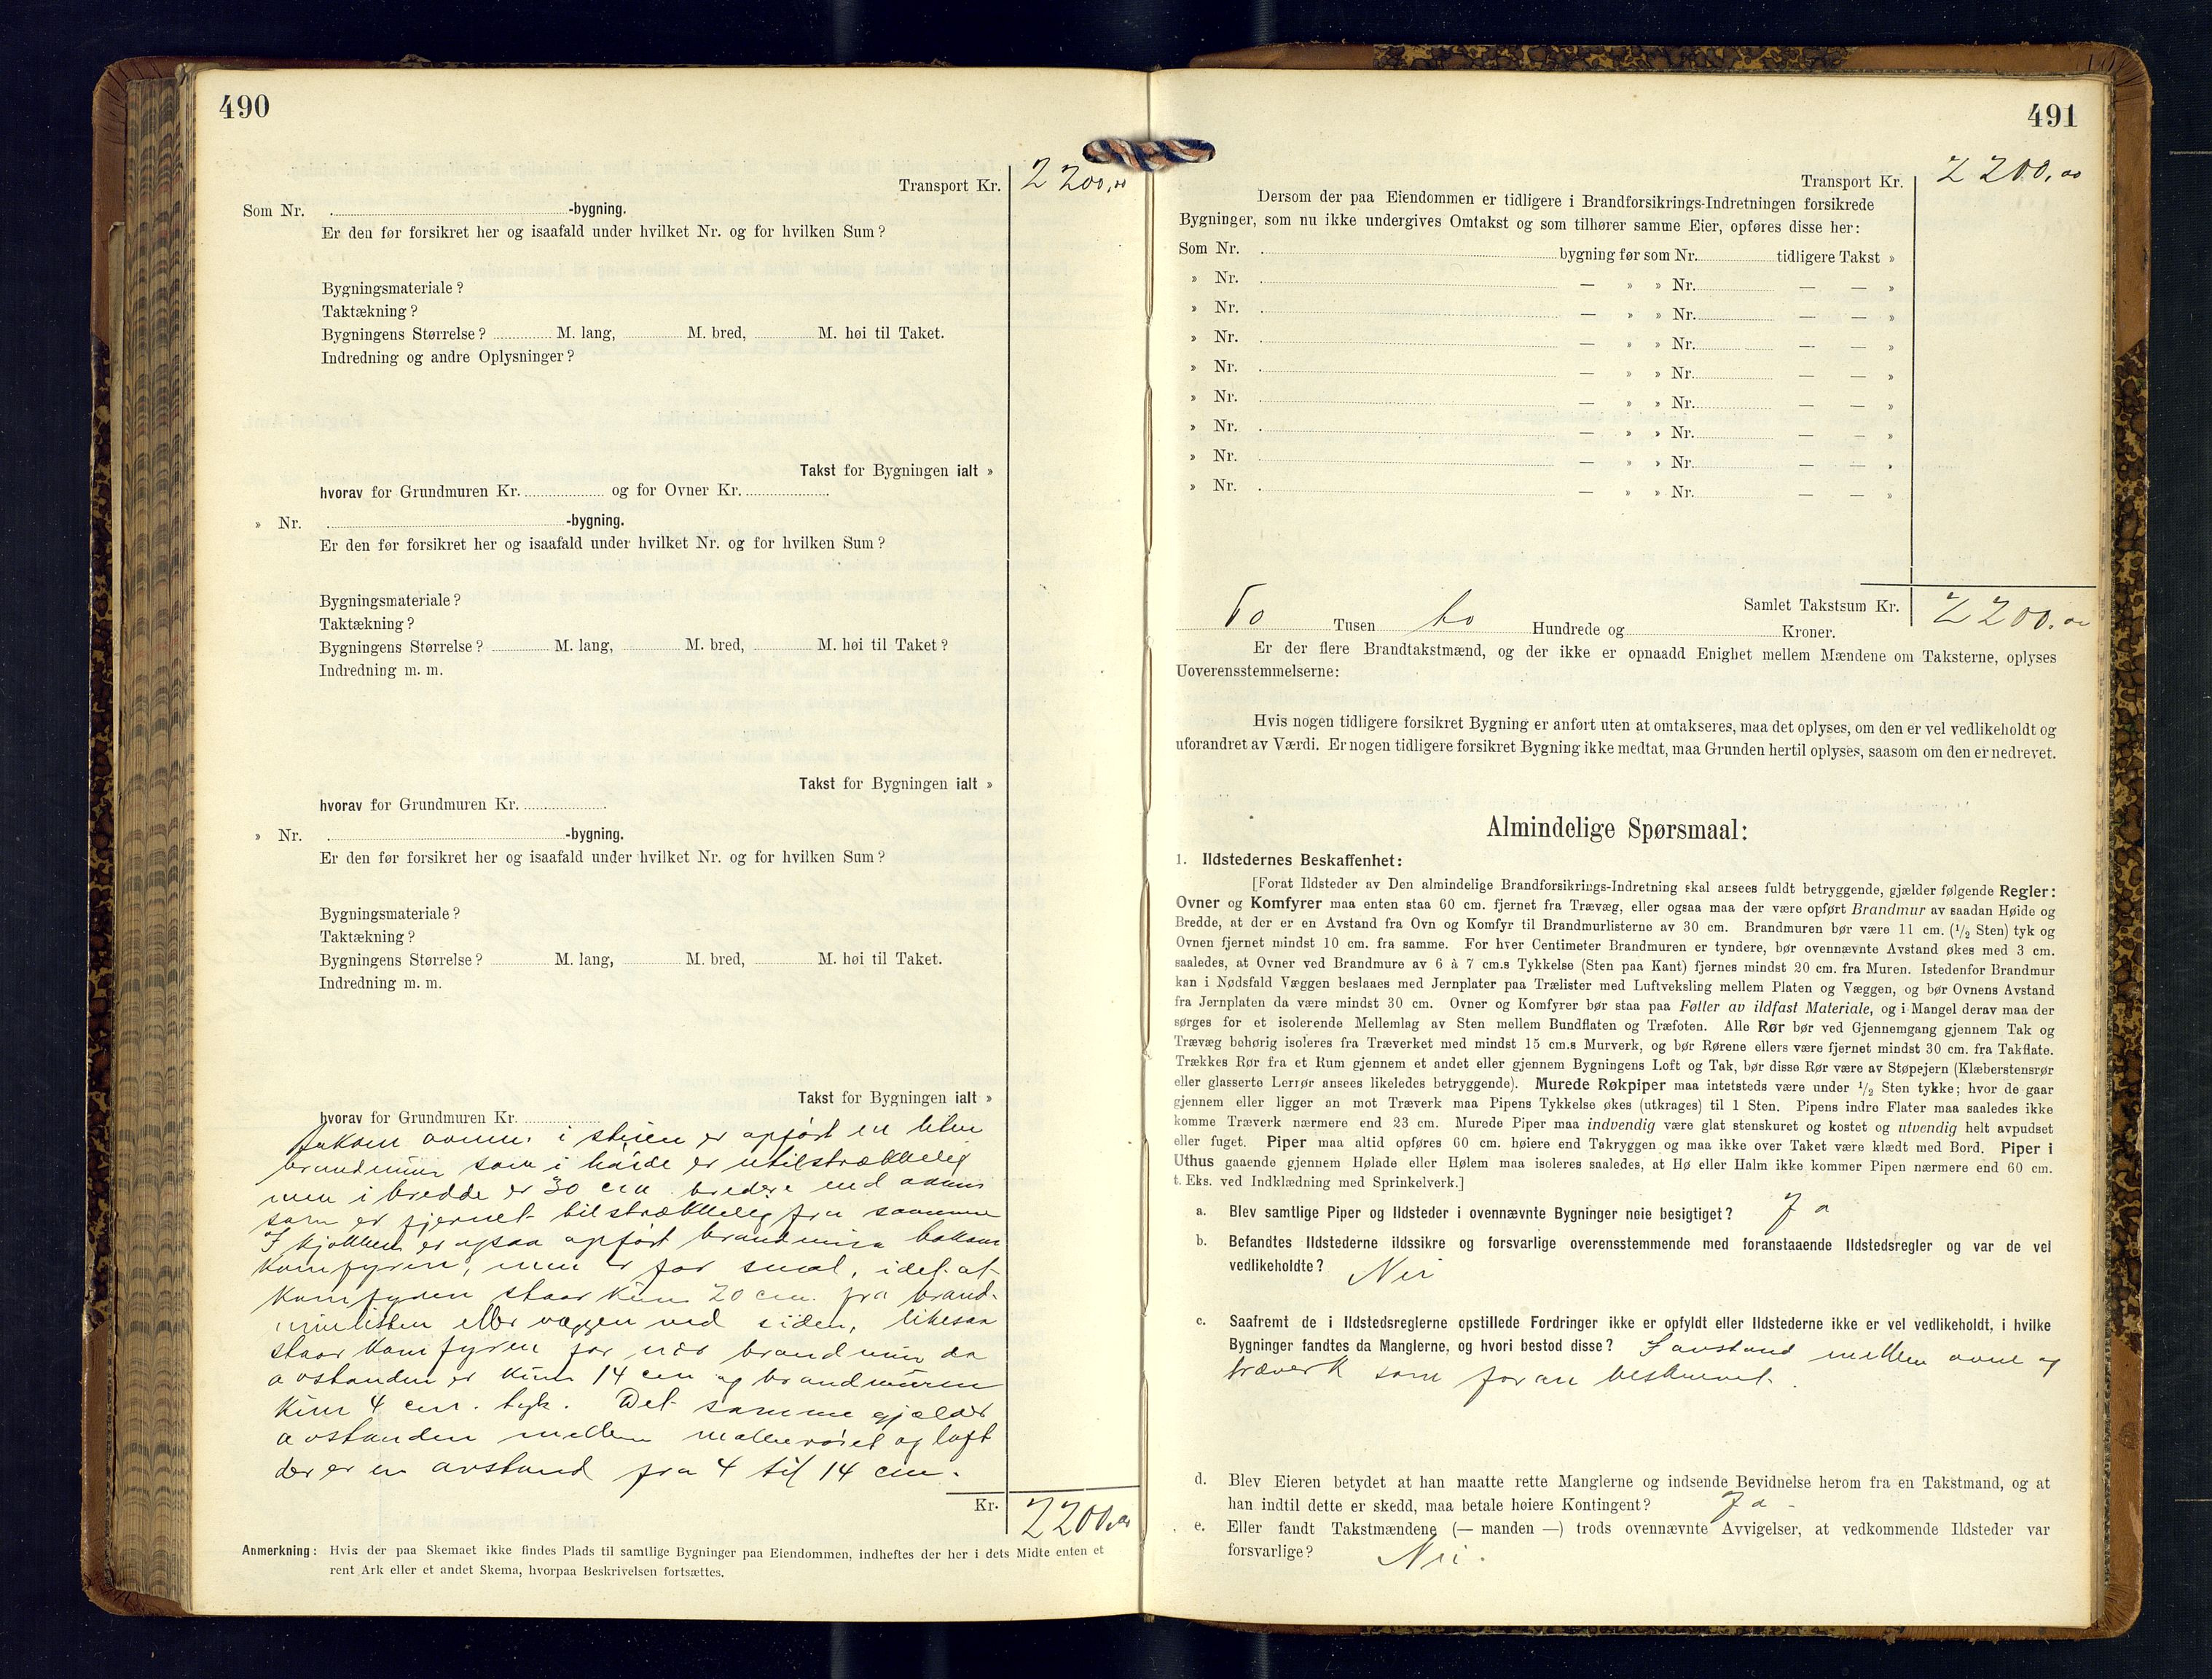 490
Transport Kr. 2 200,00
Som Nr. -bygning.
Er den før forsikret her og isaafald under hvilket Nr. og for hvilken Sum?
Bygningsmateriale?
Taktækning?
Bygningens Størrelse? M. lang, M. bred, M. høi til Taket.
Indredning og andre Oplysninger?
Takst for Bygningen ialt »
hvorav for Grundmuren Kr. og for Ovner Kr.
» Nr. -bygning.
Er den før forsikret her og isaafald under hvilket Nr. og for hvilken Sum?
Bygningsmateriale?
Taktækning?
Bygningens Størrelse? M. lang, M. bred, M. høi til Taket?
Indredning m. m.
Takst for Bygningen ialt »
hvorav for Grundmuren Kr.
» Nr. -bygning.
Er den før forsikret her og isaafald under hvilket Nr. og for hvilken Sum?
Bygningsmateriale?
Taktækning?
Bygningens Størrelse? M. lang, M. bred, M. høi til Taket.
Indredning m. m.
Takst for Bygningen ialt »
hvorav for Grundmuren Kr.
ovnen i stuen er opført en liten
brandmur som i høide er utilstrækkelig
men i bredde er 30 cm bredere end ovnen
som er fjernet tilstrækkelig fra samme
I kjøkken er ogsaa opført brandmur bakom
komfyren, men er for smal, idet at
komfyren staar kun 20 cm. fra brand-
murlisten eller væggen ved siden, likesaa
staar komfyren for nær brandmur da
avstanden er kun 14 cm og brandmuren
kun 4 cm. tyk. Det samme gjælder
avstanden mellem og loft
der er en avstand fra 4 til 14 cm.
Kr. 2200,00
Anmerkning: Hvis der paa Skemaet ikke findes Plads til samtlige Bygninger paa Eiendommen, indheftes der her i dets Midte enten et
rent Ark eller et andet Skema, hvorpaa Beskrivelsen fortsættes.
491
Transport Kr. 2 200,00
Dersom der paa Eiendommen er tidligere i Brandforsikrings-Indretningen forsikrede
Bygninger, som nu ikke undergives Omtakst og som tilhører samme Eier, opføres disse her:
Som Nr. bygning før som Nr. tidligere Takst »
» Nr. — » » Nr. — — »
» Nr. — » » Nr. — — »
» Nr. — » » Nr. — — »
» Nr. — » » Nr. — — »
» Nr. — » » Nr. — — »
» Nr. — » » Nr. — — »
» Nr. — » » Nr. — — »
» Nr. — » » Nr. — — »
Samlet Takstsum Kr. 2200,00
To Tusen to Hundrede og Kroner.
Er der flere Brandtakstmænd, og der ikke er opnaadd Enighet mellem Mændene om Taksterne, oplyses
Uoverensstemmelserne:
Hvis nogen tidligere forsikret Bygning er anført uten at omtakseres, maa det oplyses, om den er vel vedlikeholdt og
uforandret av Værdi. Er nogen tidligere forsikret Bygning ikke medtat, maa Grunden hertil oplyses, saasom om den er nedrevet.
Almindelige Spørsmaal:
1. Ildstedernes Beskaffenhet:
[Forat Ildsteder av Den almindelige Brandforsikrings-Indretning skal ansees fuldt betryggende, gjælder følgende Regler:
Ovner og Komfyrer maa enten staa 60 cm. fjernet fra Trævæg, eller ogsaa maa der være opført Brandmur av saadan Høide og
Bredde, at der er en Avstand fra Ovn og Komfyr til Brandmurlisterne av 30 cm. Brandmuren bør være 11 cm. (1/2 Sten) tyk og
Ovnen fjernet mindst 10 cm. fra samme. For hver Centimeter Brandmuren er tyndere, bør ovennævnte Avstand økes med 3 cm.
saaledes, at Ovner ved Brandmure av 6 à 7 cm.s Tykkelse (Sten paa Kant) fjernes mindst 20 cm. fra Muren. Istedenfor Brandmur
kan i Nødsfald Væggen beslaaes med Jernplater paa Trælister med Luftveksling mellem Platen og Væggen, og bør Ovnens Avstand
fra Jernplaten da være mindst 30 cm. Ovner og Komfyrer bør staa paa Føtter av ildfast Materiale, og i Mangel derav maa der
sørges for et isolerende Mellemlag av Sten mellem Bundflaten og Træfoten. Alle Rør bør ved Gjennemgang gjennem Tak og
Trævæg behørig isoleres fra Træverket med mindst 15 cm.s Murverk, og bør Rørene ellers være fjernet mindst 30 cm. fra Takflate.
Trækkes Rør fra et Rum gjennem et andet eller gjennem Bygningens Loft og Tak, bør disse Rør være av Støpejern (Klæberstensrør
eller glasserte Lerrør ansees likeledes betryggende). Murede Røkpiper maa intetsteds være under 1/2 Sten tykke; hvor de gaar
gjennem eller ligger an mot Træverk maa Pipens Tykkelse økes (utkrages) til 1 Sten. Pipens indre Flater maa saaledes ikke
komme Træverk nærmere end 23 cm. Murede Piper maa indvendig være glat stenskuret og kostet og utvendig helt avpudset
eller fuget. Piper maa altid opføres 60 cm. høiere end Takryggen og maa ikke over Taket være klædt med Bord. Piper i
Uthus gaaende gjennem Hølade eller Hølem maa isoleres saaledes, at Hø eller Halm ikke kommer Pipen nærmere end 60 cm.
t. Eks. ved Indklædning med Sprinkelverk.]
a. Blev samtlige Piper og Ildsteder i ovennævnte Bygninger nøie besigtiget? Ja
b. Befandtes Ildstederne ildssikre og forsvarlige overensstemmende med foranstaaende Ildstedsregler og var de vel
vedlikeholdte? Nei
c. Saafremt de i Ildstedsreglerne opstillede Fordringer ikke er opfyldt eller Ildstederne ikke er vel vedlikeholdt, i hvilke
Bygninger fandtes da Manglerne, og hvori bestod disse? I avstand mellem ovne og
træverk som foran beskrevet.
d. Blev Eieren betydet at han maatte rette Manglerne og indsende Bevidnelse herom fra en Takstmand, og at
han indtil dette er skedd, maa betale høiere Kontingent? Ja -
e. Eller fandt Takstmændene (— manden —) trods ovennævnte Avvigelser, at vedkommende Ildsteder var
forsvarlige? Nei.